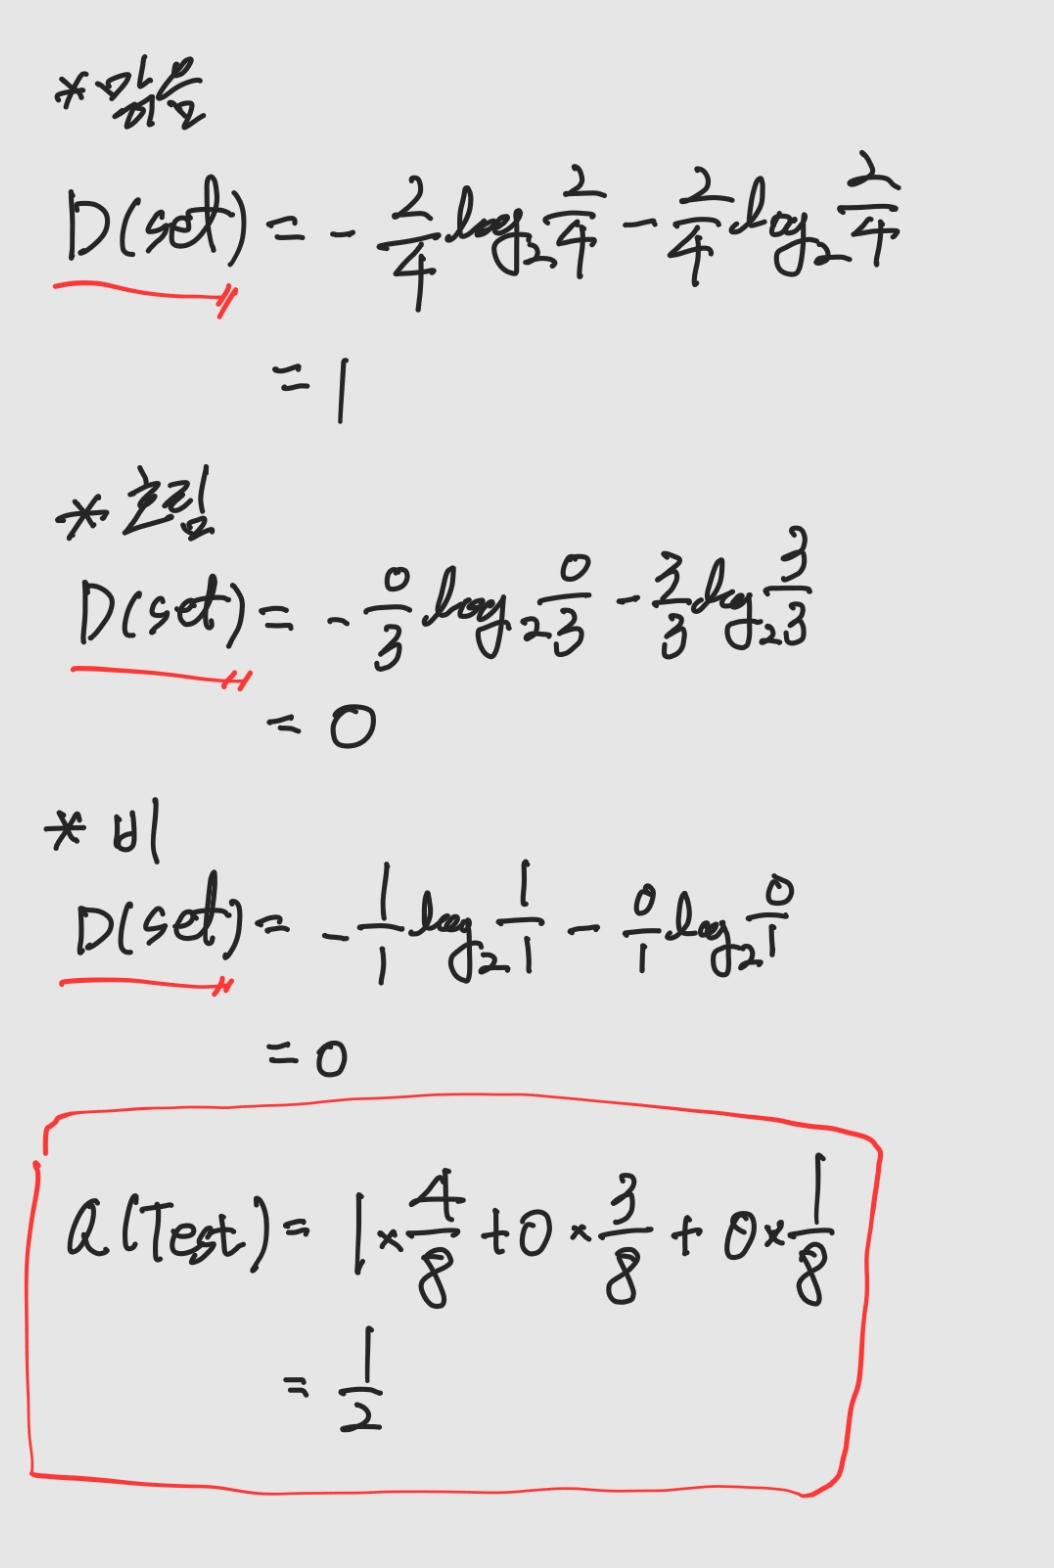 * 맑음
D(set) = - 2/4 log₂ 2/4 - 2/4 log₂ 2/4
= 1
* 흐림
D(set) = - 0/3 log₂ 0/3 - 3/3 log₂ 3/3
= 0
* 비
D(set) = - 1/1 log₂ 1/1 - 0/1 log₂ 0/1
= 0
Q(Test) = 1 × 4/8 + 0 × 3/8 + 0 × 1/8
= 1/2